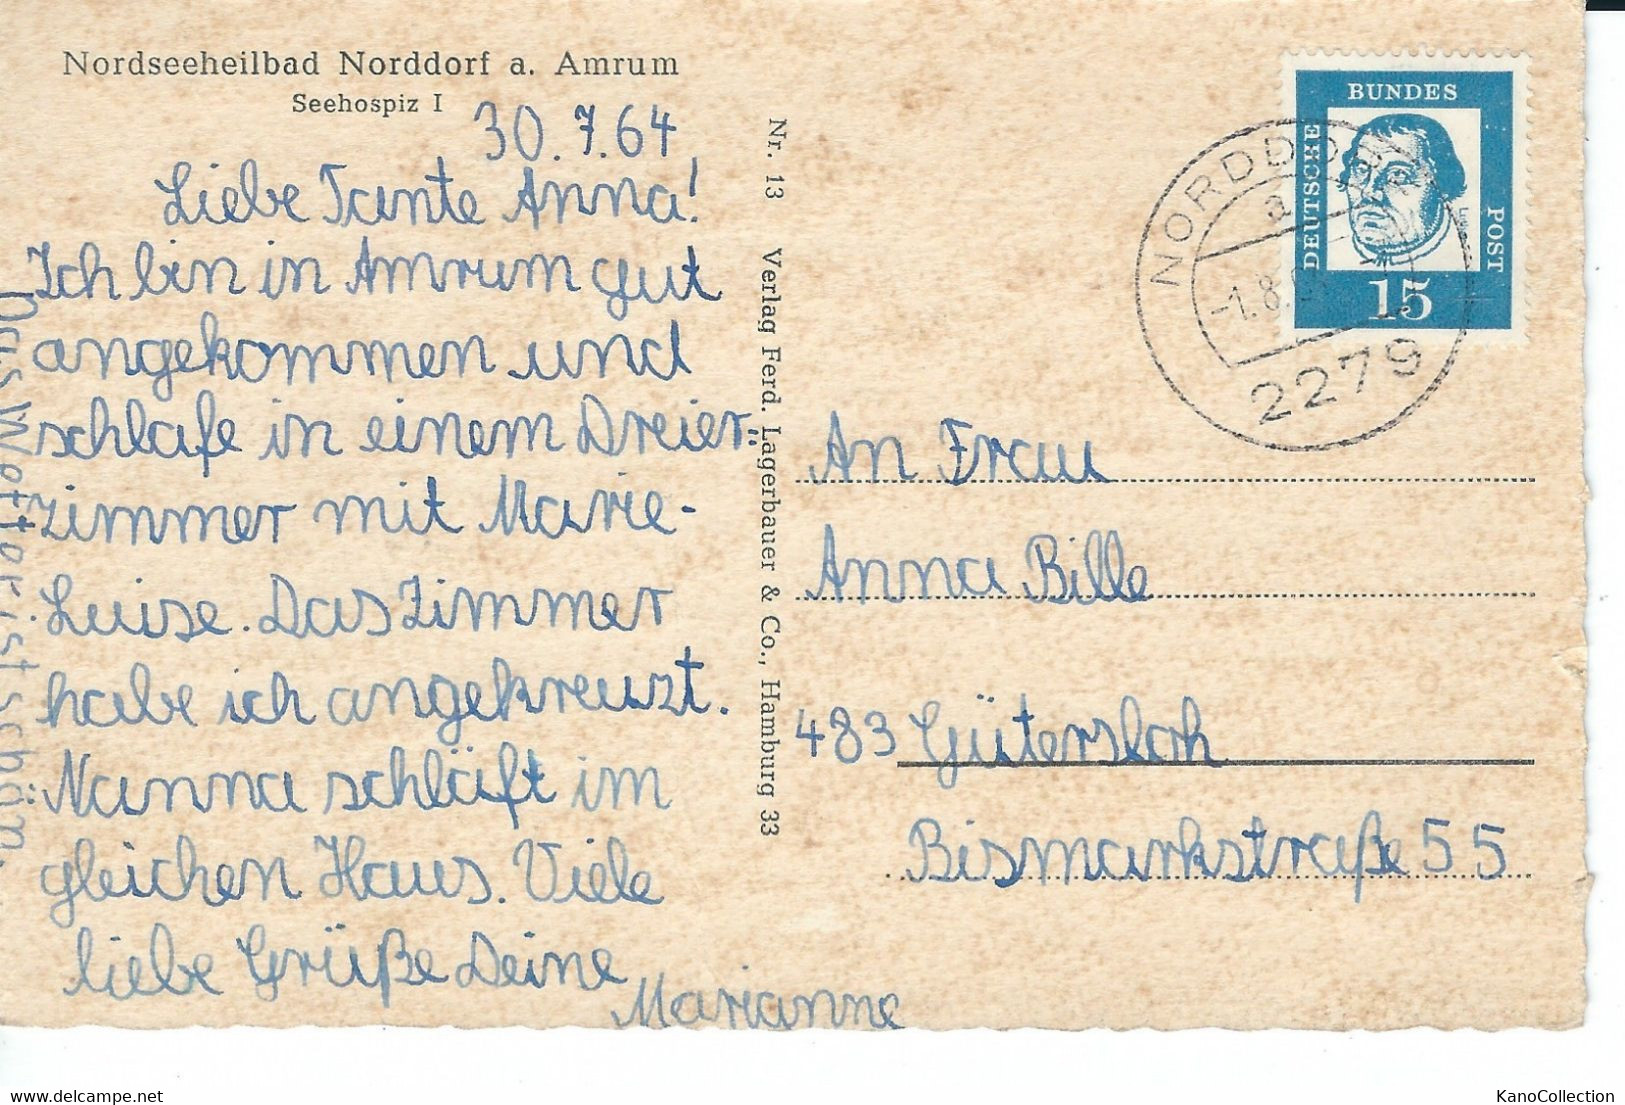 Nordseeheilbad Norddorf a. Amrum
Seehospiz I
30.7.64
Liebe Tante Anna!
Ich bin in Amrum gut
angekommen und
schlafe in einem Dreier-
zimmer mit Marie-
Luise. Das Zimmer
habe ich angekreuzt.
Nanna schläft im
gleichen Haus. Viele
liebe Grüße Deine
Marianne
Das Wetter ist schön.
Nr. 13 Verlag Ferd. Lagerbauer & Co., Hamburg 33
DEUTSCHE
BUNDES
POST
15
NORDDORF
-1.8.
2279
An Frau
Anna Bille
483 Gütersloh
Bismarkstraße 55
KanoCollection